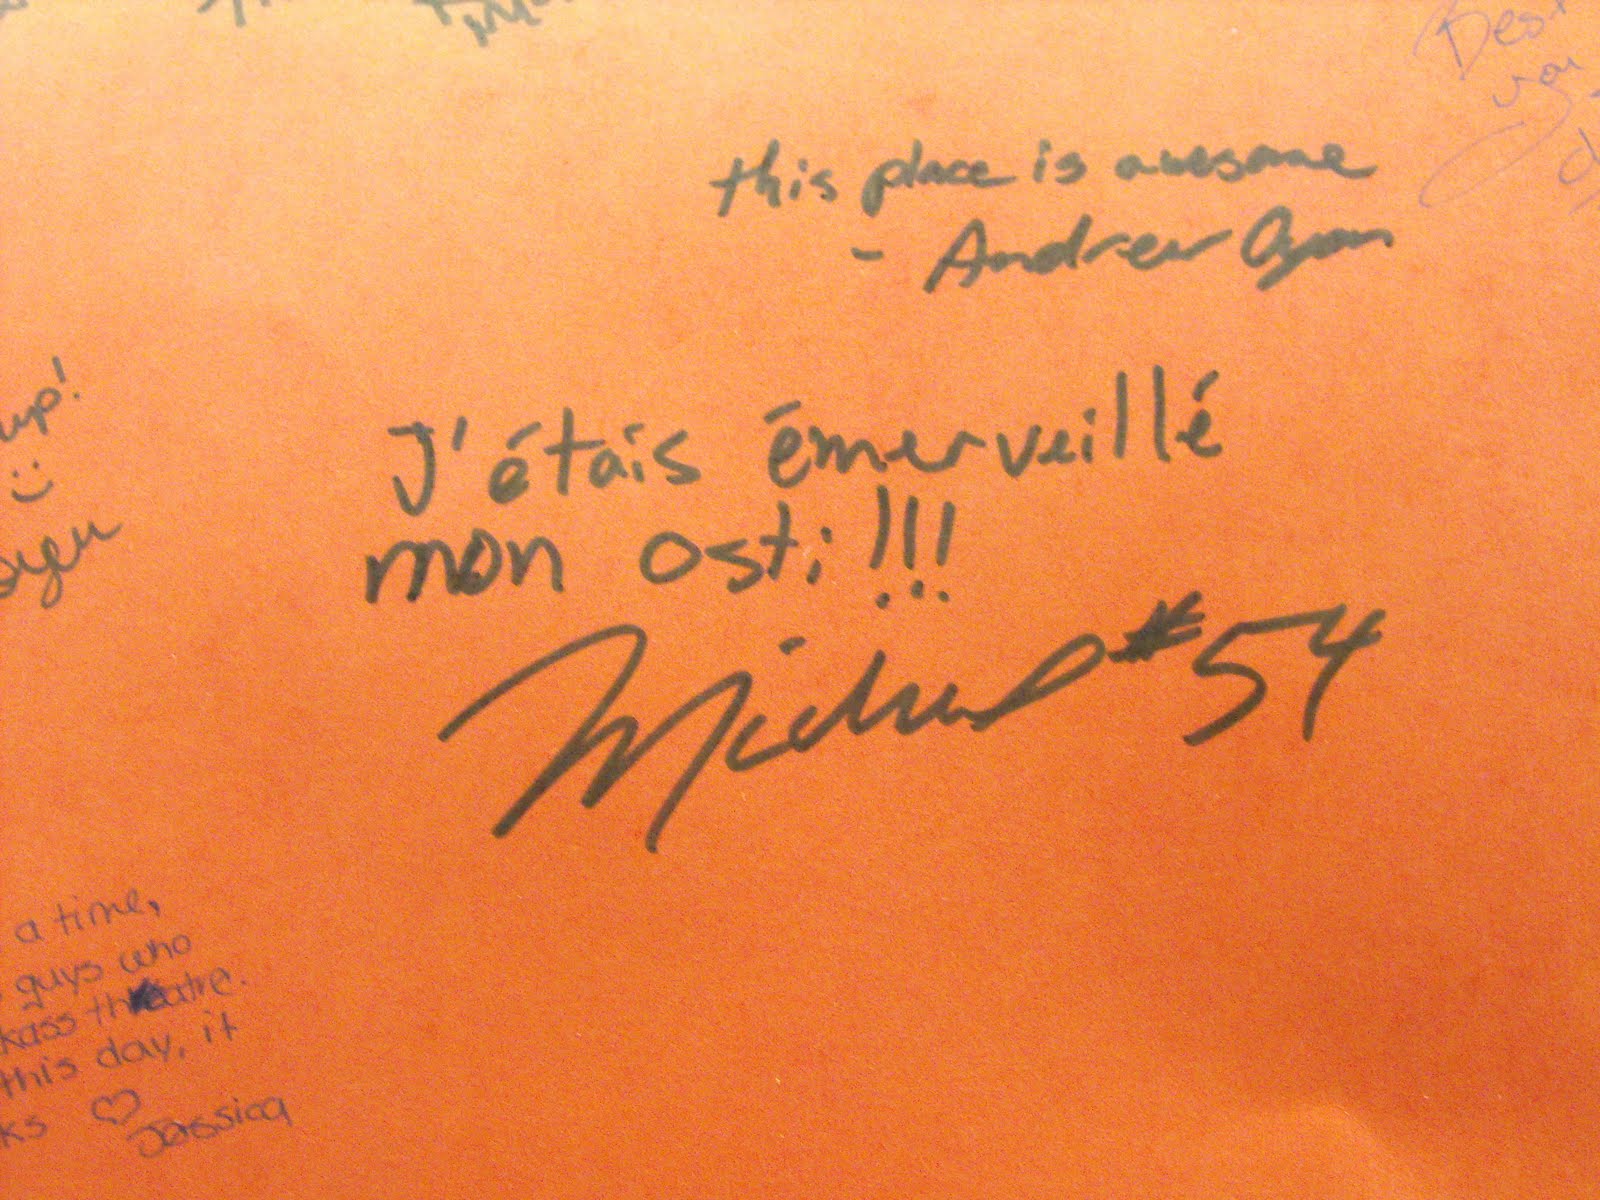 Best
you
this place is awesome
- Andrew
up!
J'étais émerveillé
mon osti!!!
Michael #54
a time,
guys who
kass theatre.
this day, it
ks ♡
Jessica